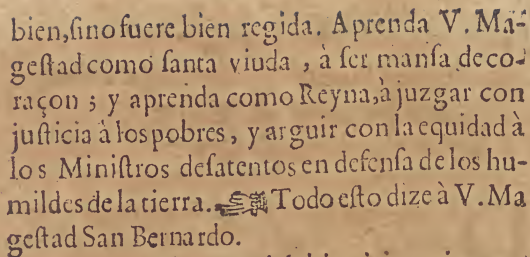 bien,ſino fuere bien regida. Aprenda V. Ma-
geſtad como ſanta viuda, à ſer manſa de co-
raçon; y aprenda como Reyna, à juzgar con
juſticia à los pobres, y arguir con la equidad à
los Miniſtros deſatentos en defenſa de los hu-
mildes de la tierra. Todo eſto dize à V. Ma
geſtad San Bernardo.